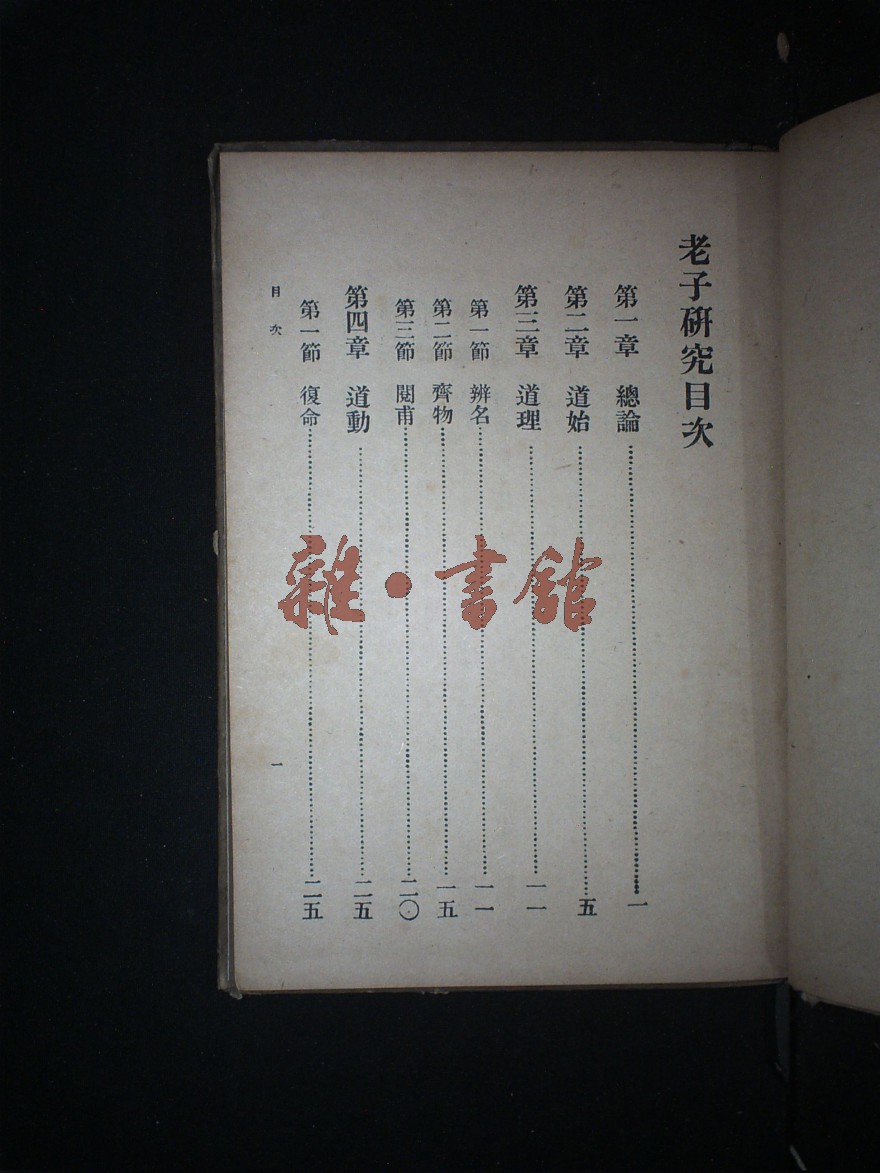 老子研究目次
第一章 總論……一
第二章 道始……五
第三章 道理……一一
第一節 辨名……一一
第二節 齊物……一五
第三節 閱甫……二〇
第四章 道動……二五
第一節 復命……二五
目次
一
雜·書館